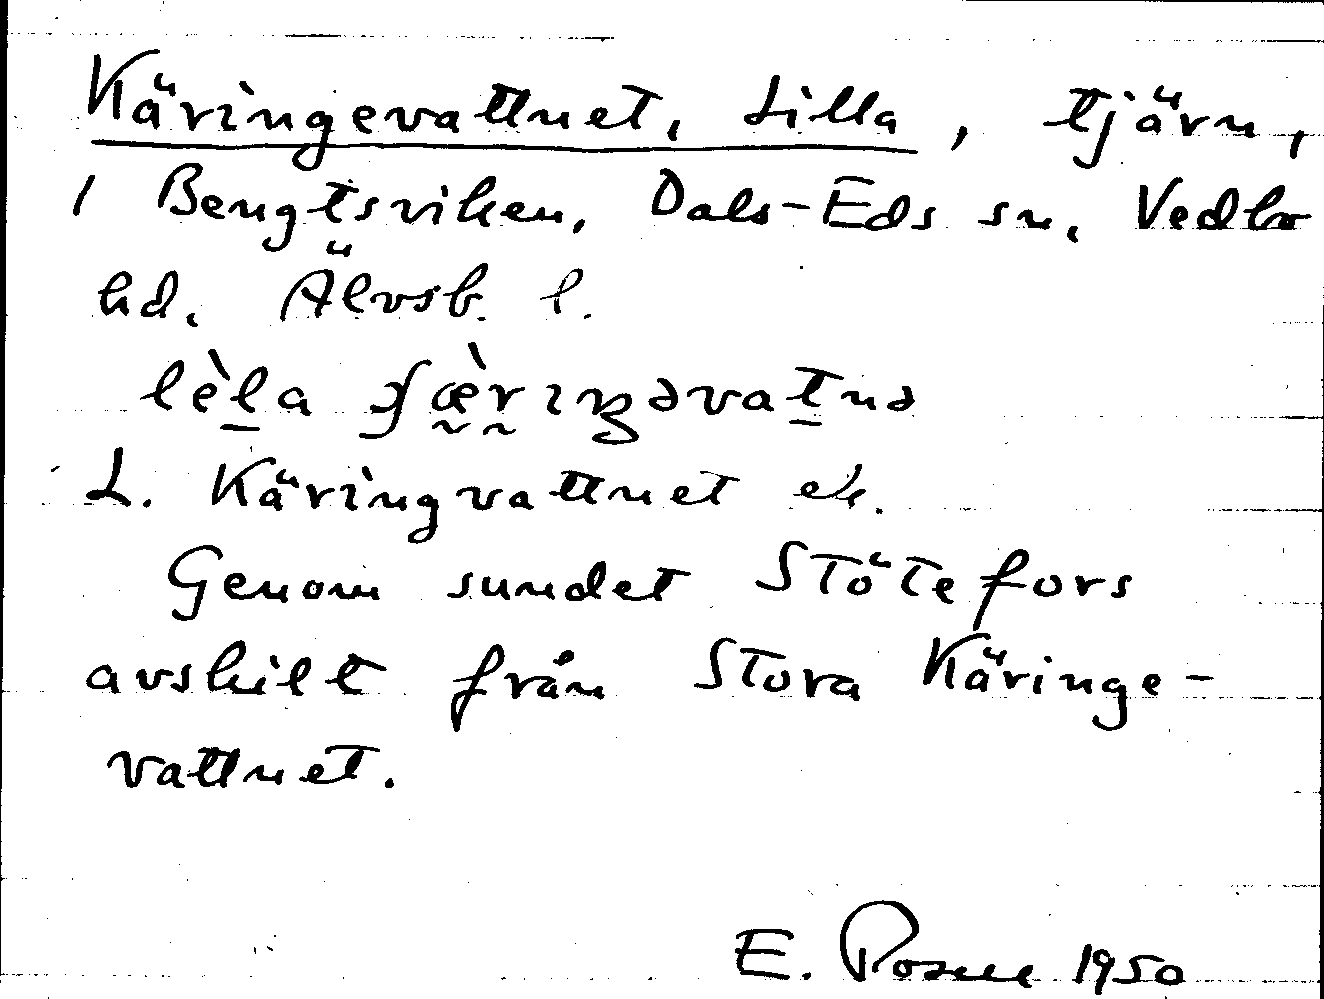 Käringevattnet, Lilla, tjärn,
i Bengtsviken, Dals-Eds sn, Vedbo
hd, Älvsb. l.
lèla ʃæ̀riŋəvatnə
L. Käringvattnet ek.
Genom sundet Stötefors
avskilt från Stora Käringe-
vattnet.
E. 1950